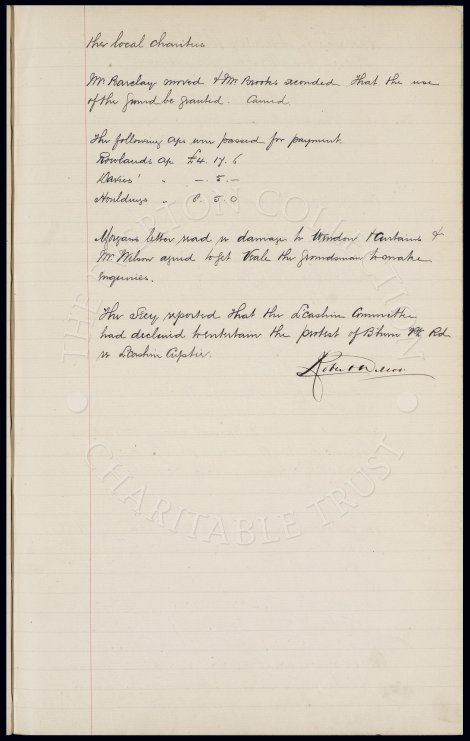 the local charities
Mr Barclay moved & Mr Brooks seconded That the use
of the ground be granted. Carried.
The following a/cs were passed for payment.
Rowlands a/c £4. 17. 6
Davies' " –. 5. –
Houldings " 8. 5. 0
Morgans letter read re damage to Window & Curtains &
Mr Wilson agreed to get Veale the Groundsman to make
enquiries.
The Secy reported that the L'cashire Committee
had declined to entertain the protest of B'ham Rd
re L'cashire Cuptie.
THE EVERTON COLLECTION
CHARITABLE TRUST